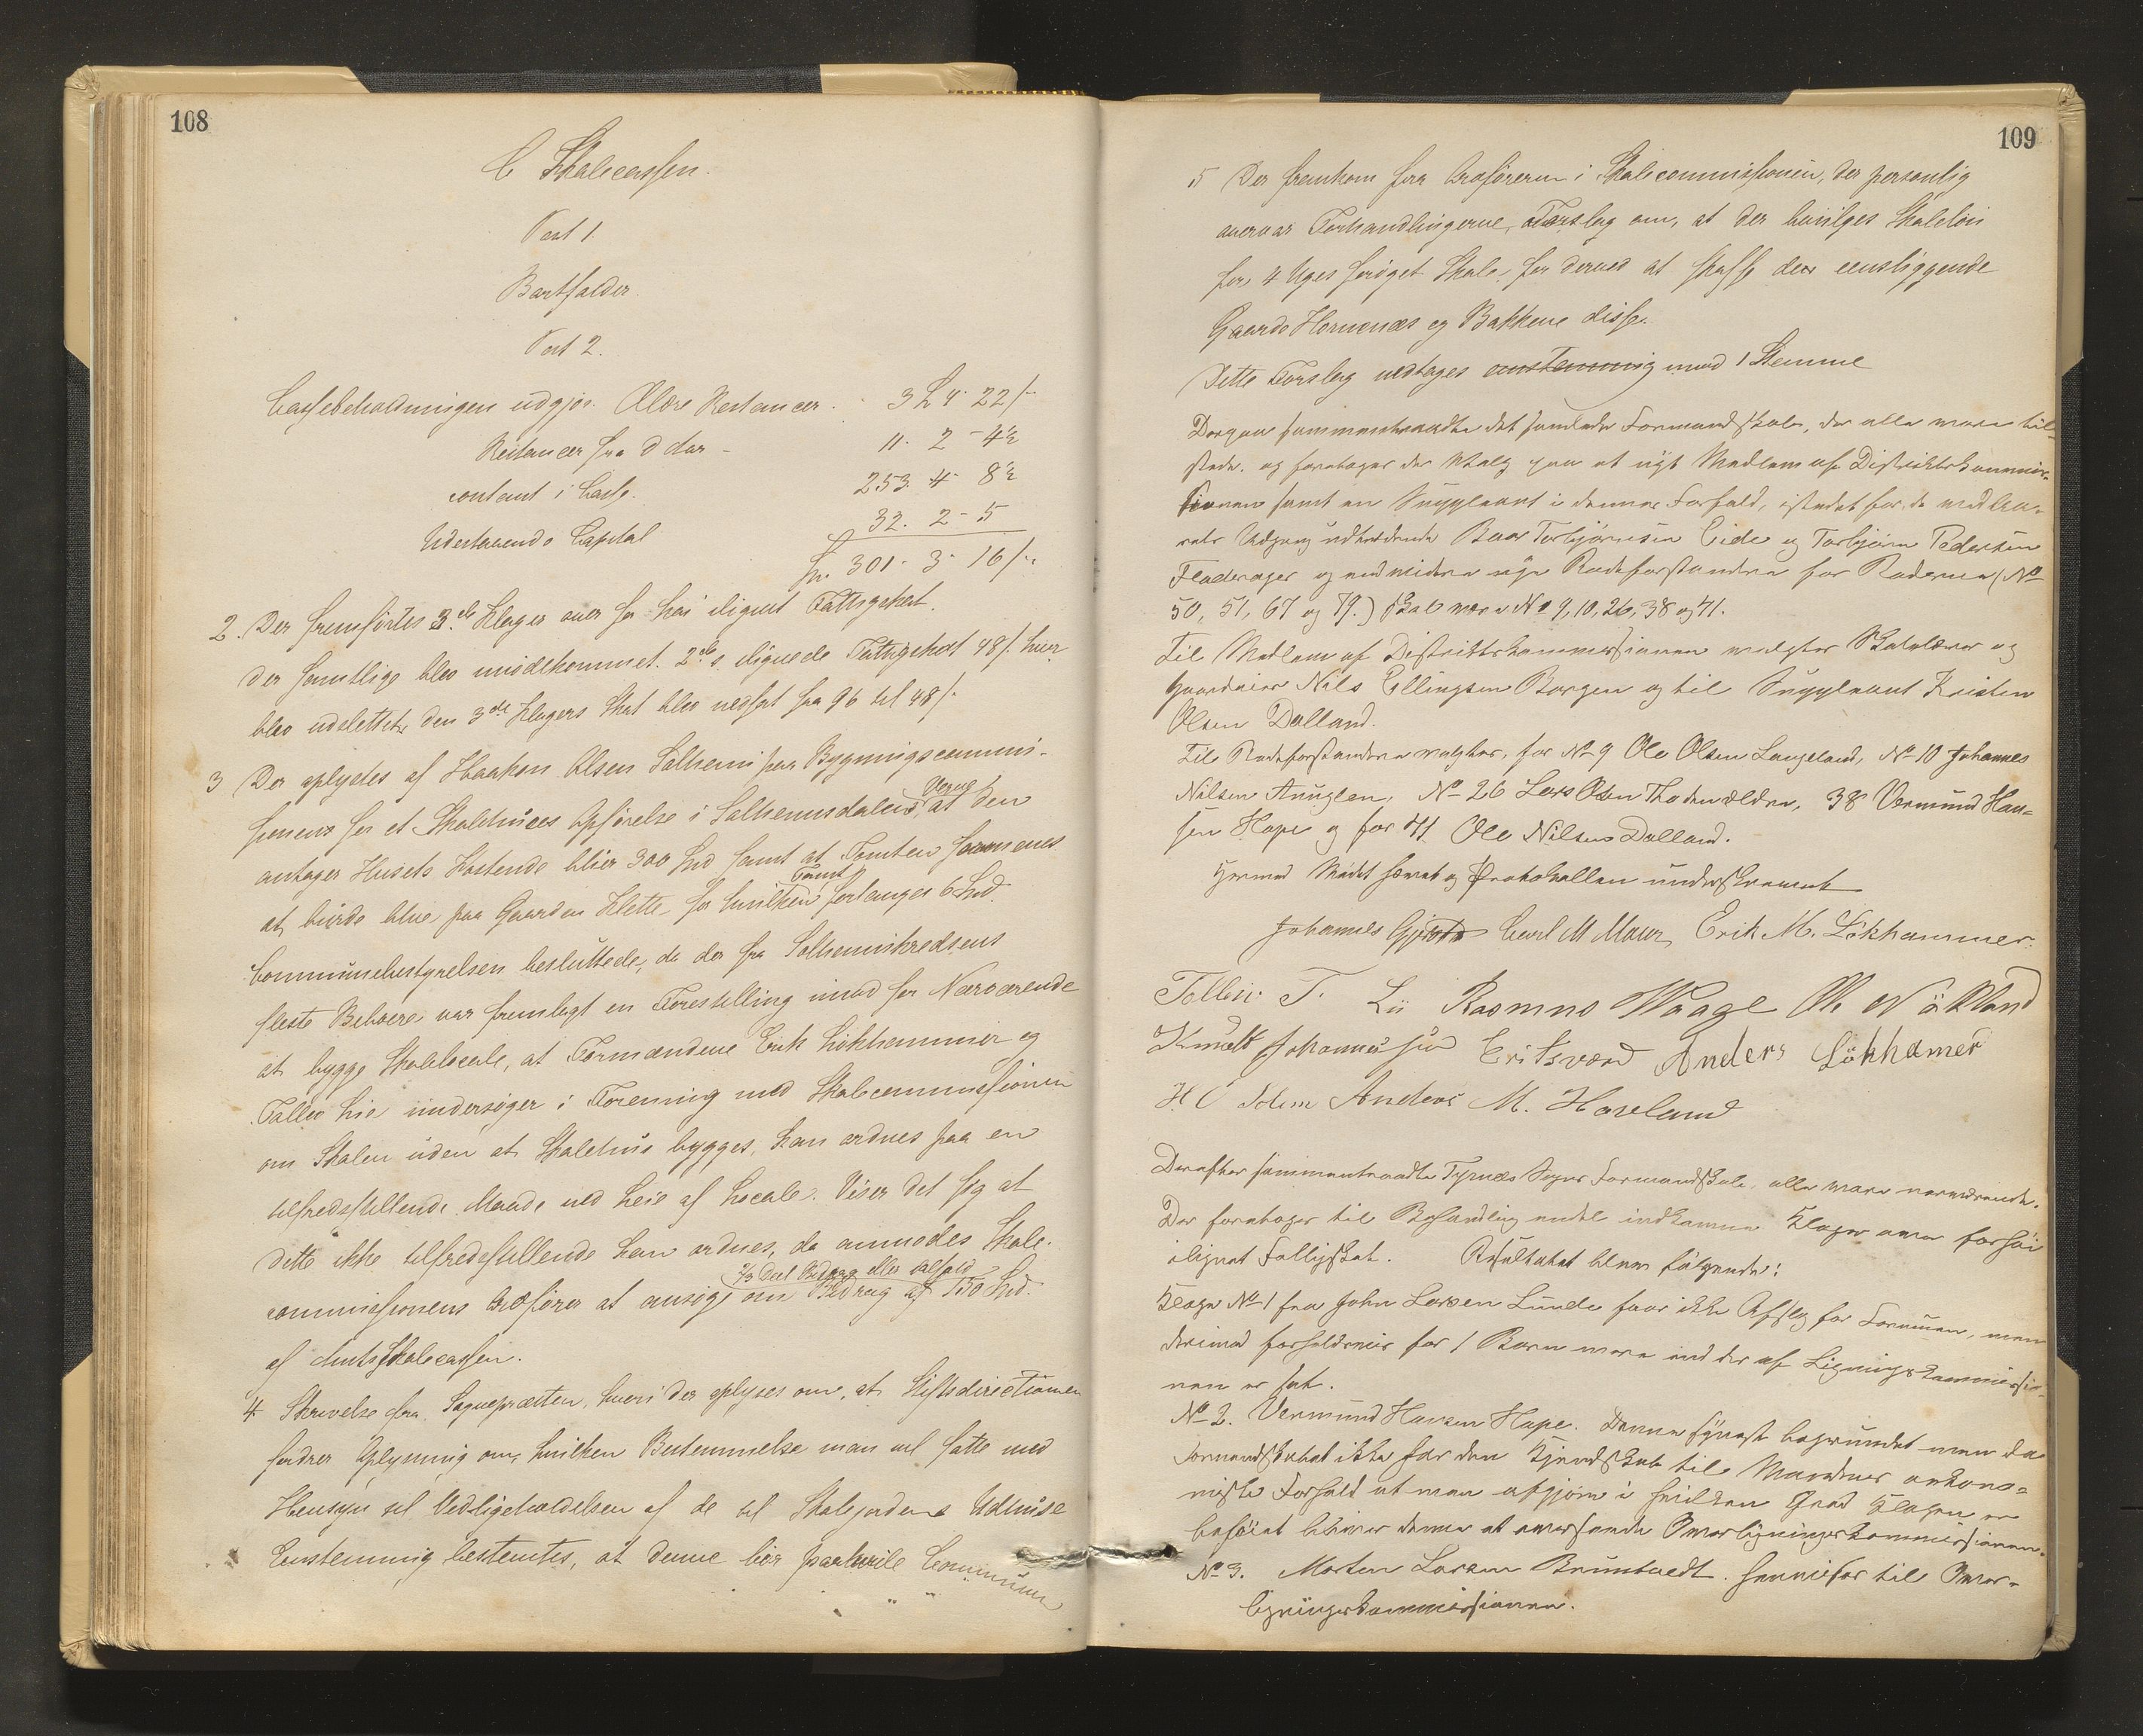 108
C Skolecassen.
Post 1
Bortfalder.
Post 2.
Cassebeholdningen udgjør. Ældre Restancer. 3 ₰ 4 22/-
Restancer fra d Aar - 11. 2 - 4½
contant i Casse. 253 4 8½
Udestaaende Capital 32. 2 - 5
Spd. 301 - 3 - 16/-
2. Der fremførtes 3de Klager over for høi ilignet Fattigskat.
der samtlige blev imødekommet. 2de ilignede Fattigskat 48/. hver
blev udslettet, den 3die Klagers Skat blev nedsat fra 96 til 48/.
3 Der oplystes af Haakon Olsen Solheim paa Bygningscommis-
sionens for et Skolehuses Opførelse i Solheimsdalens Vegne, at den
antager Husets Kostende bliver 300 Spd samt at Tomten formenes
at burde blive paa Gaarden Klette, for hvilken Tomt forlanges 6 Spd.
Communebestyrelsen besluttede, da der fra Solheimskredsens
fleste Beboere var fremlagt en Forestilling imod for Nærværende
at bygge Skolelocale, at Formændene Erik Løkhammer og
Tollev Lie undersøger i Forening med Skolecommissionen
om Skolen uden at Skolehus bygges, kan ordnes paa en
tilfredsstillende Maade ved Leie af Locale. Viser det sig at
dette ikke tilfredsstillende kan ordnes, da anmodes Skole-
commissionens Ordfører at ansøge om 2/3 Deel Bidrag eller ialfald Bidrag af 150 Spd.
af Amtsskolecassen.
4 Skrivelse fra Sognepræsten, hvori der oplyses om, at Stiftsdirectionen
fordrer Oplysning om, hvilken Bestemmelse man vil fatte med
Hensyn til Vedligeholdelsen af de til Skolejordens Udhuse
Eenstemmig bestemtes, at denne bør paahvile Communen
109
5 Der fremkom fra Ordføreren i Skolecommissionen, der personlig
overvar Forhandlingerne, Forslag om, at der bevilges Skoleløn
for 4 Uges forøget Skole, for derved at skaffe de eensliggende
Gaarde Hornenæs og Bakkene disse.
Dette Forslag vedtages eenstemmig mod 1 Stemme
Derpaa sammentraadte det samlede Formandskab, der alle vare til-
stede. og foretoges der Valg paa et nyt Medlem af Distriktskommis-
sionen samt en Suppleant i dennes Forfald, istedet for de med Aa-
rets Udgang udtrædende Baar Torbjørnsen Eide og Torbjørn Pedersen
Fladerager og endvidere nye Rodeforstandere for Roderne (No
50, 51, 67 og 79.) skal være No 9, 10, 26, 38 og 41.
Til Medlem af Distriktskommissionen valgtes Skolelærer og
Gaardeier Nils Ellingsen Borgen og til Suppleant Kristen
Olsen Dalland.
Til Rodeforstandere valgtes, for No 9 Ole Olsen Langeland, No 10 Johannes
Nilsen Anuglen, No 26 Lars Olsen Thoden ældre, 38 Vermund Han-
sen Hope og for 41 Ole Nilsen Dalland.
Hermed Mødet hævet og Protokollen underskrevet
Johannes Carl M Maur, Erik M. Lökhammer.
Tollev T. Lii Rasmus Waage Ole Nökland
Knudt Johannesen Eritsværd Anders Lökhamer
H. O Solem Anders M. Haveland
Derefter sammentraadte Tysnæs Sogns Formandskab, alle vare nærværende.
Der foretoges til Behandling endel indkomne Klager over forhøi
ilignet Fattigskat. Resultatet blev følgende:
Klage No 1 fra John Larsen Lunde faar ikke Afslag for Formuen, men
derimod forholdsvis for 1 Barn mere end der af Ligningskommissio-
nen er sat.
No 2. Vermund Hansen Hope. Denne synes begrundet men da
Formandskabet ikke har den Kjendskab til Mandens økono-
miske Forhold at man afgjøre i hvilken Grad Klagen er
beføiet bliver denne at oversende Overligningskommissionen.
No 3. Morten Larsen Bruntvedt. henvises til Over-
ligningskommissionen.